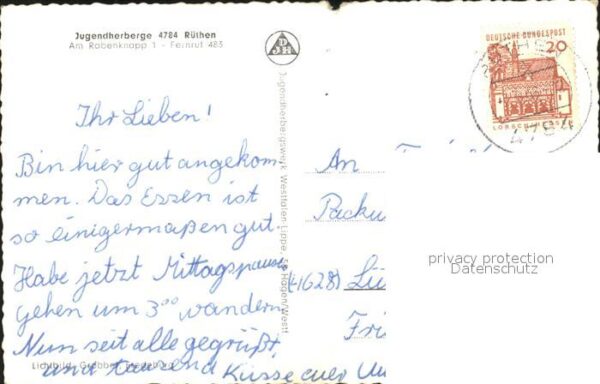 Jugendherberge 4784 Rüthen
Am Rabenknapp 1 - Fernruf 483
DJH
DEUTSCHE BUNDESPOST
20
LORSCH/HESSEN
4784
Jugendherbergswerk Westfalen Lippe, 58 Hagen/Westf
Ihr Lieben!
Bin hier gut angekom-
men. Das Essen ist
so einigermaßen gut.
Habe jetzt Mittagspause
gehen um 3⁰⁰ wandern
Nun seit alle gegrüßt,
und tausend Küsse euer
An
Packu
(4628) Lü
Fri
privacy protection
Datenschutz